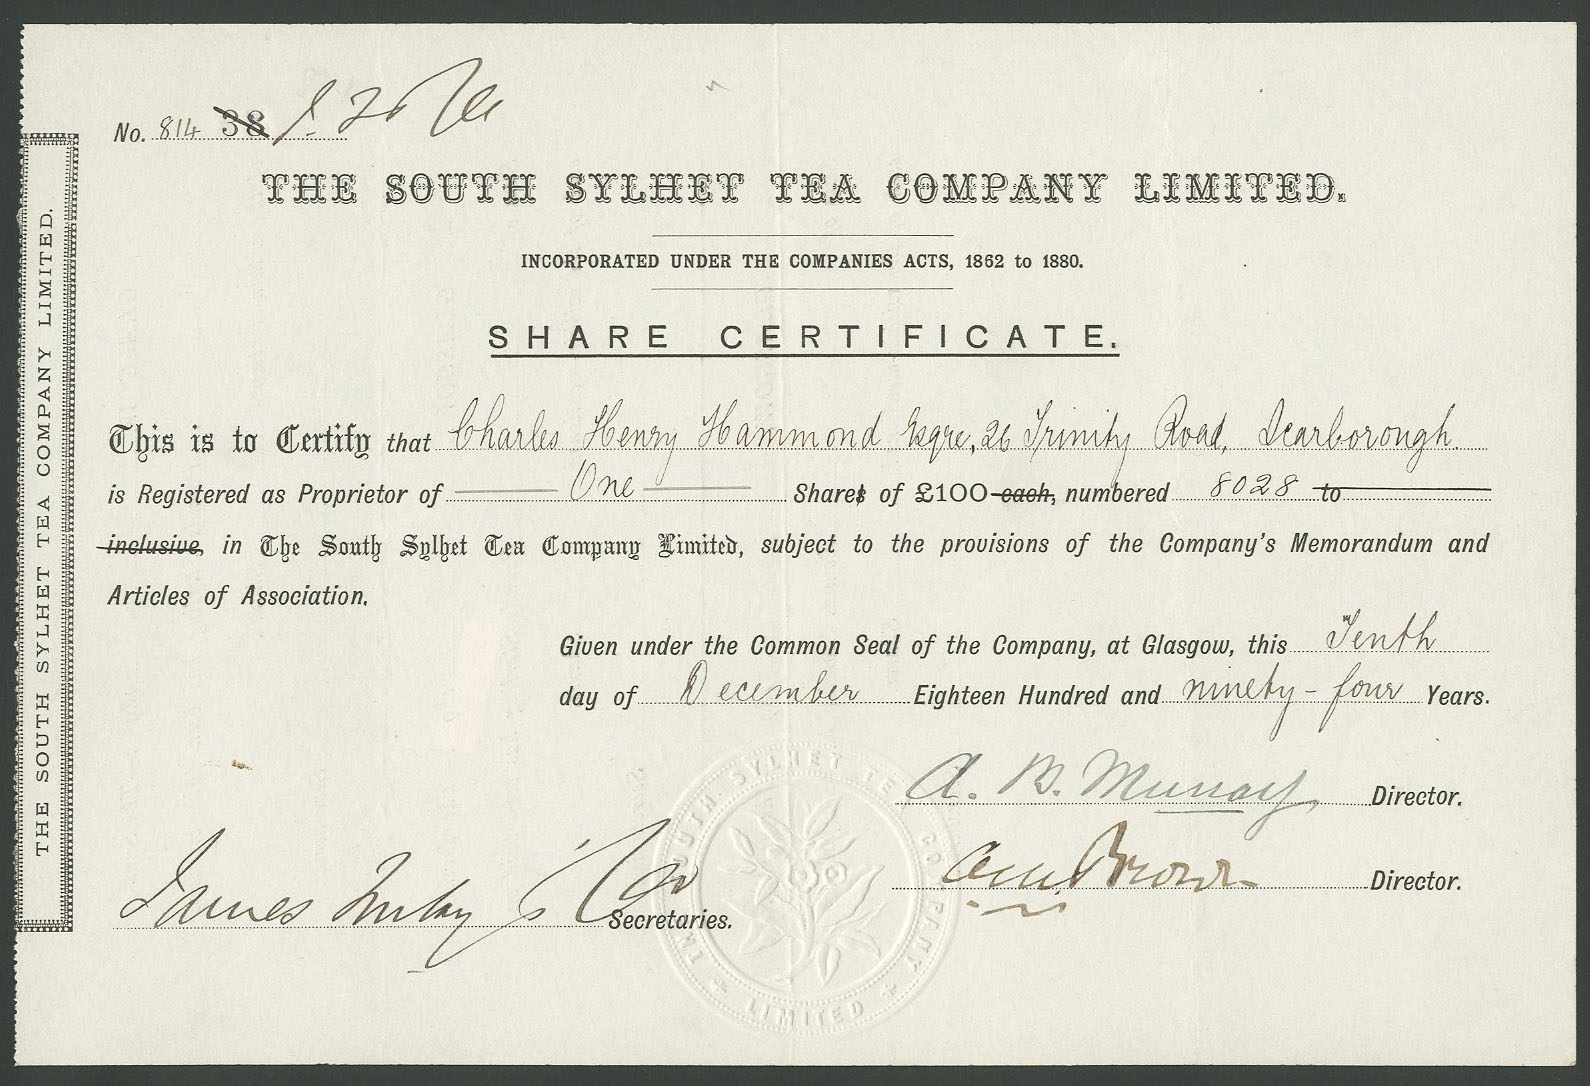 No. 814 38
THE SOUTH SYLHET TEA COMPANY LIMITED.
INCORPORATED UNDER THE COMPANIES ACTS, 1862 to 1880.
SHARE CERTIFICATE.
This is to Certify that Charles Henry Hammond Esqre, 26 Trinity Road, Scarborough.
is Registered as Proprietor of One Shares of £100 each, numbered 8028 to
inclusive, in The South Sylhet Tea Company Limited, subject to the provisions of the Company's Memorandum and
Articles of Association.
Given under the Common Seal of the Company, at Glasgow, this Tenth
day of December Eighteen Hundred and ninety-four Years.
A. B. Murray Director.
Brown Director.
James Finlay & Co Secretaries.
THE SOUTH SYLHET TEA COMPANY LIMITED
THE SOUTH SYLHET TEA COMPANY LIMITED.